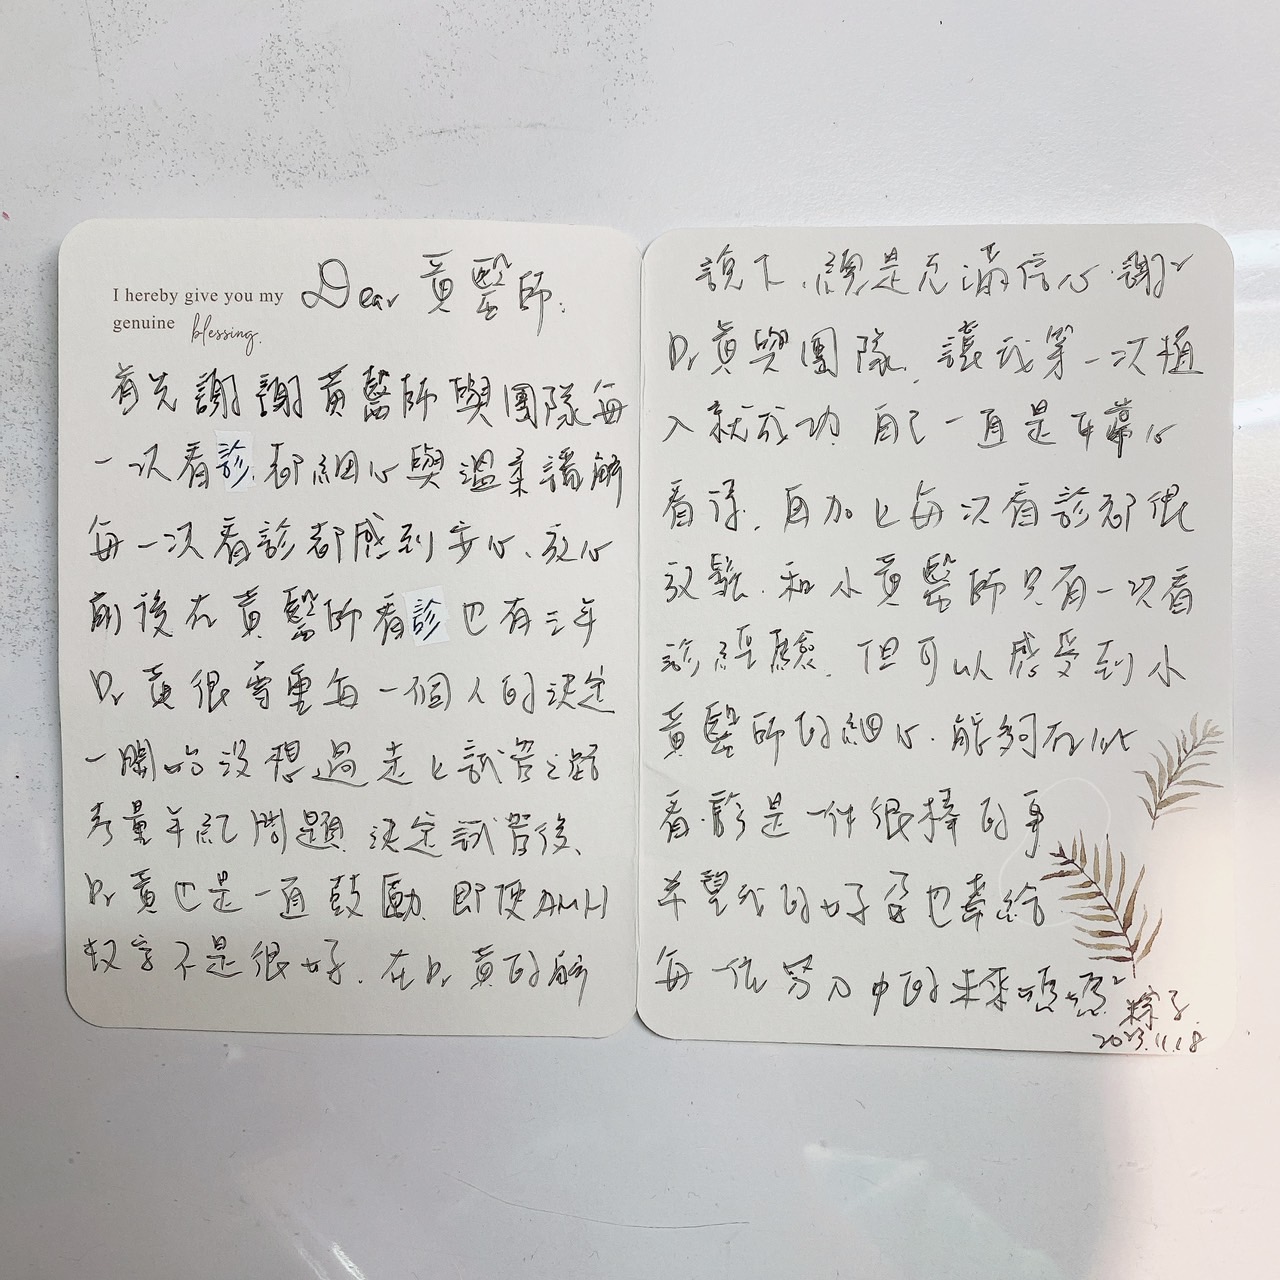 I hereby give you my
genuine blessing.
Dear 黃醫師:
首先謝謝黃醫師與團隊每
一次看診.都細心與溫柔講解
每一次看診都感到安心、放心
前後在黃醫師看診也有三年
Dr 黃很尊重每一個人的決定
一開始沒想過走上試管之路
考量年紀問題.決定試管後、
Dr 黃也是一直鼓勵.即使AMH
數字不是很好.在Dr 黃的解
說下.總是充滿信心.謝²
Dr 黃與團隊.讓我第一次植
入就成功.自己一直是平常心
看待.再加上每次看診都很
放鬆.和小黃醫師只有一次看
診經驗.但可以感受到小
黃醫師的細心.能夠在此
看診是一件很棒的事
希望我的好孕也奉給
每一位努力中的未來媽媽²
粽子.
2023.11.18